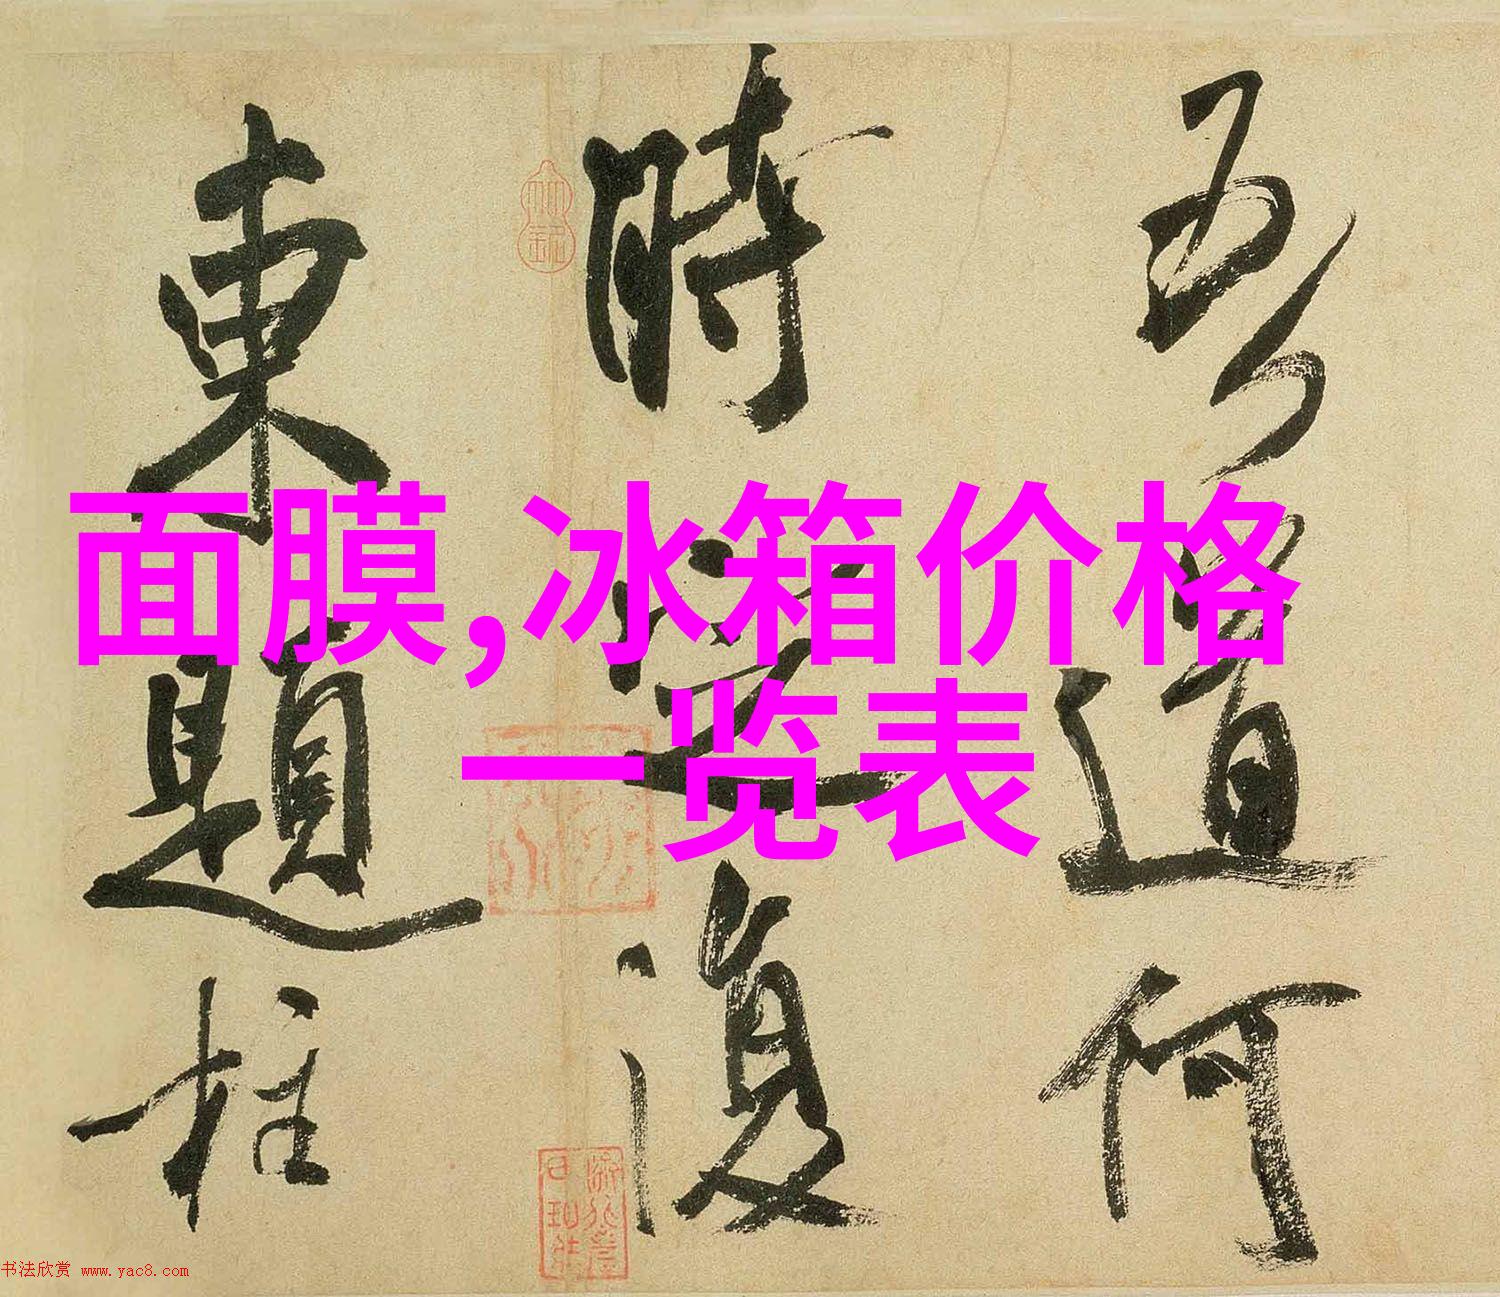 面膜,冰箱价格
一览表
吾道何
時
復
東題柱
书法欣赏 www.yac8.com